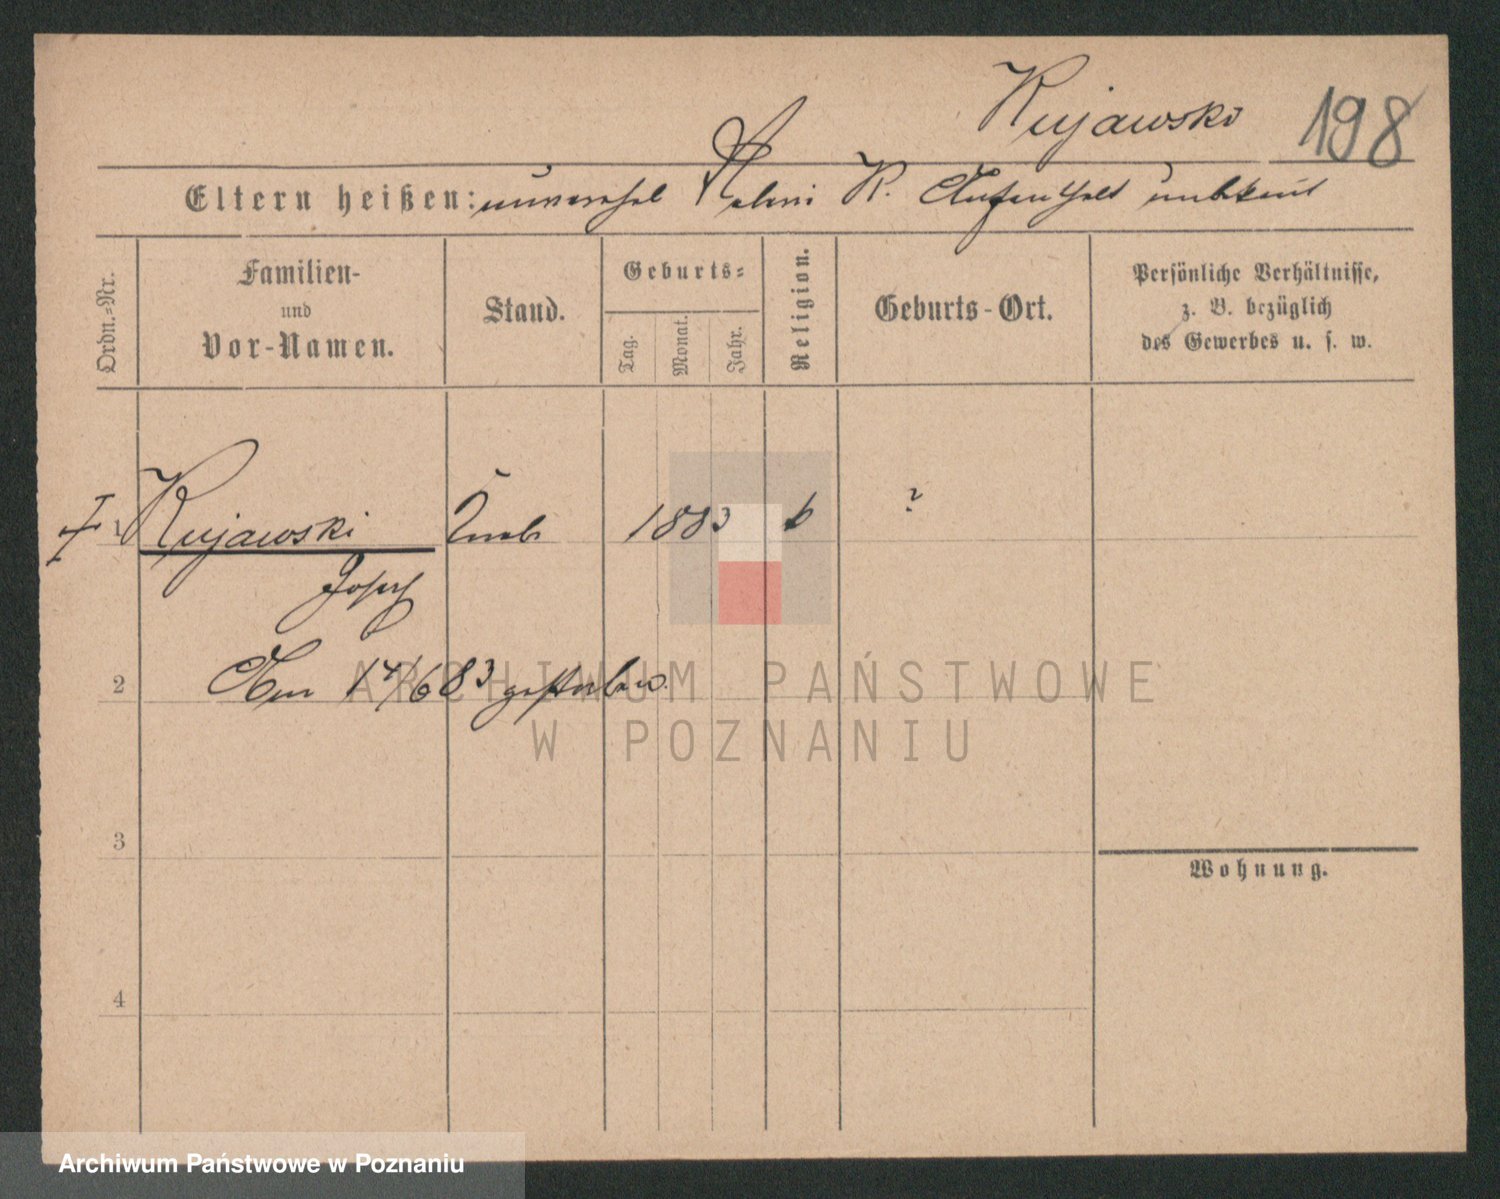 Kujawski 198
Eltern heißen: unverehel Helene K. Aufenthalt unbekannt
Ordn.=Nr.
Familien-
und
Vor-Namen.
Stand.
Geburts=
Tag.
Monat.
Jahr.
Religion.
Geburts-Ort.
Persönliche Verhältnisse,
z. B. bezüglich
des Gewerbes u. s. w.
1 Kujawski 1883 k ?
Josef
2 Am 17/6 83 gestorben.
3
Wohnung.
4
ARCHIWUM PAŃSTWOWE
W POZNANIU
Archiwum Państwowe w Poznaniu